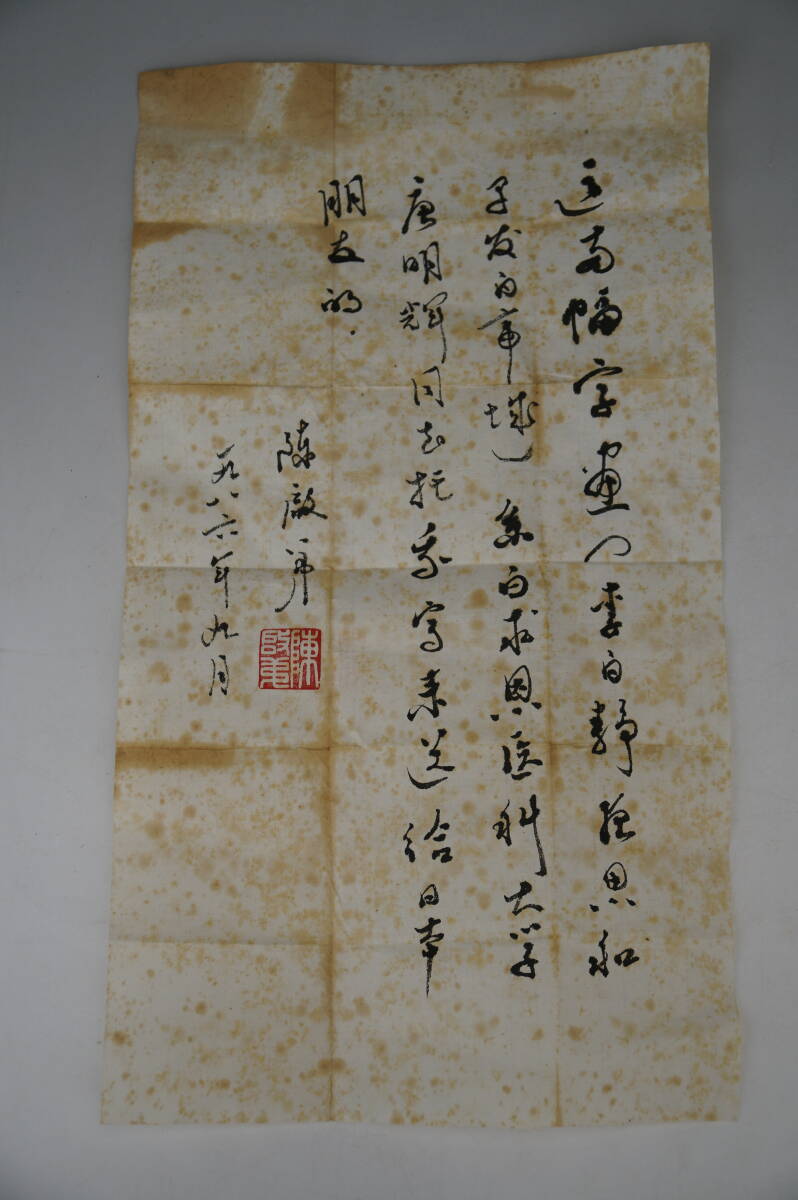 这两幅字画(李白静夜思和
早发白帝城)系白求恩医科大学
唐明辉同志托我写来送给日本
朋友的.
陈启军
一九八六年九月
陳啟軍